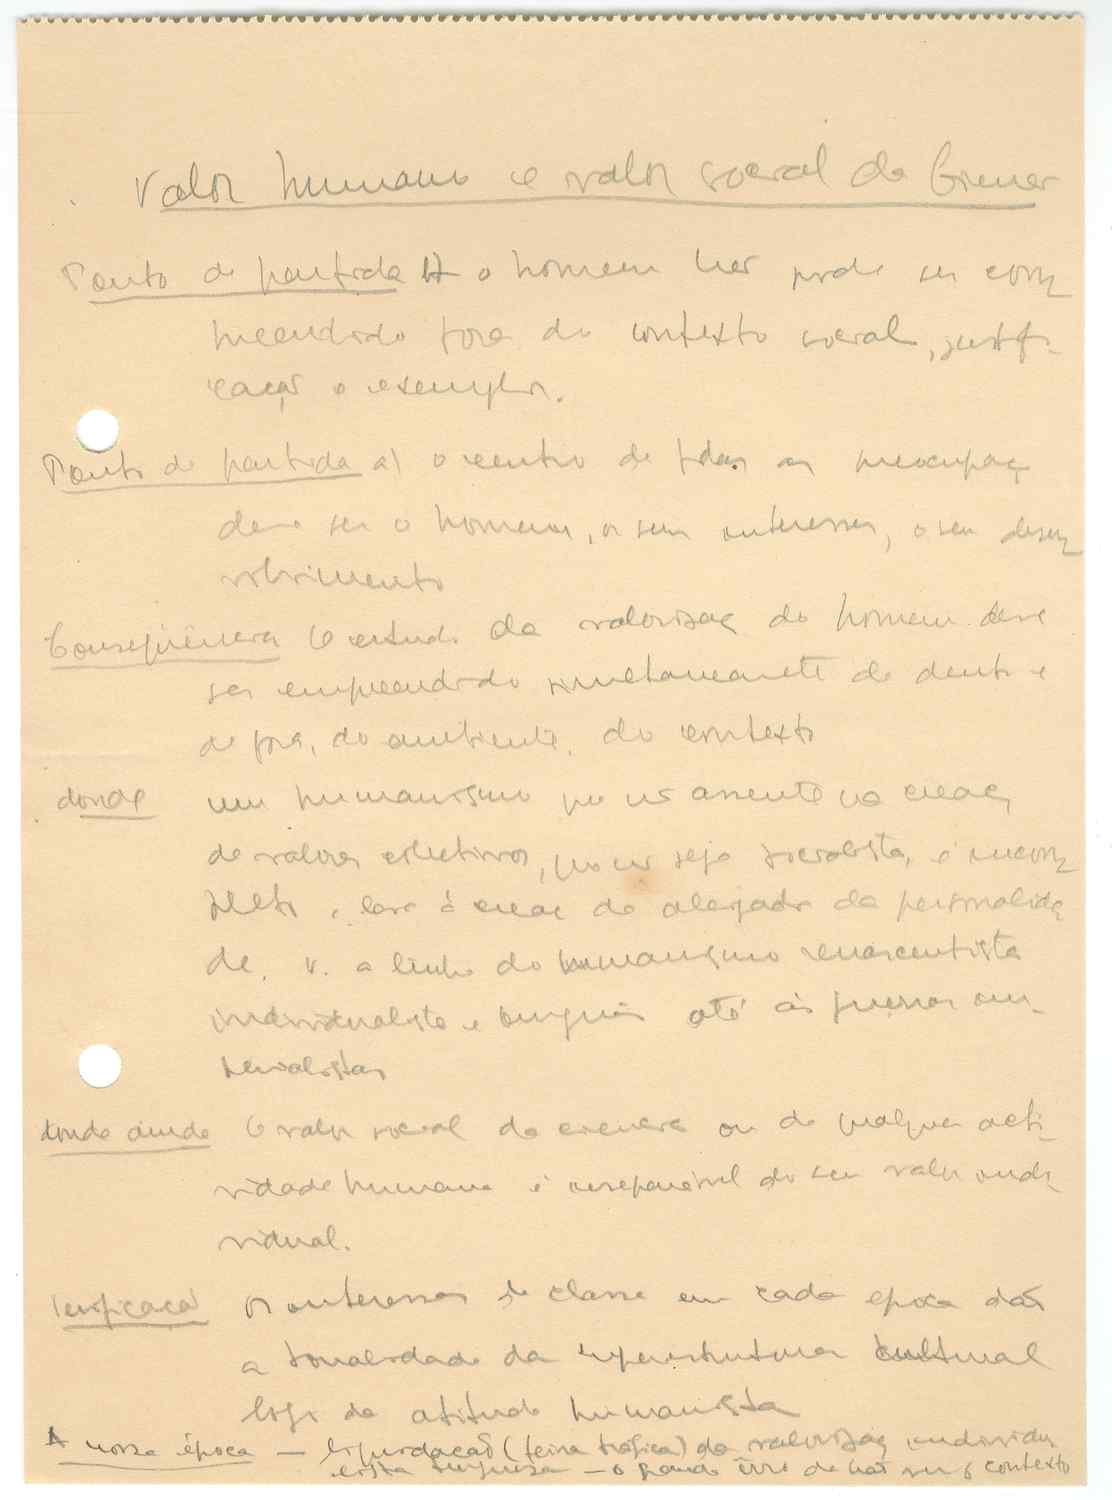 Valor humano e valor social da Ciencia
Ponto de partida o homem não pode ser com
preendido fora do contexto social, justifi-
cação e exemplos.
Ponto de partida a) o centro de todas as preocupaç
deve ser o homem, os seus interesses, o seu desen
volvimento
Conseqüência O estudo da valorizaç do homem deve
ser empreendido simultaneamente de dentro e
de fora, do ambiente, do contexto
donde um humanismo que não assente na creaç
de valores colectivos, que não seja socialista, é incom
pleto e leva à creaç do aleijado da personalida
de. v. a linha do humanismo renascentista
individualista e burguês até às guerras im-
perialistas
donde ainda O valor social da ciencia ou de qualquer acti-
vidade humana é inseparável do seu valor indi
vidual.
Verificação Os interesses de classe em cada época dão
a tonalidade da superestrutura cultural
logo da atitude humanista
A nossa época — liquidação (feira trágica) da valorizaç individu
— o grande êrro de não ver o contexto